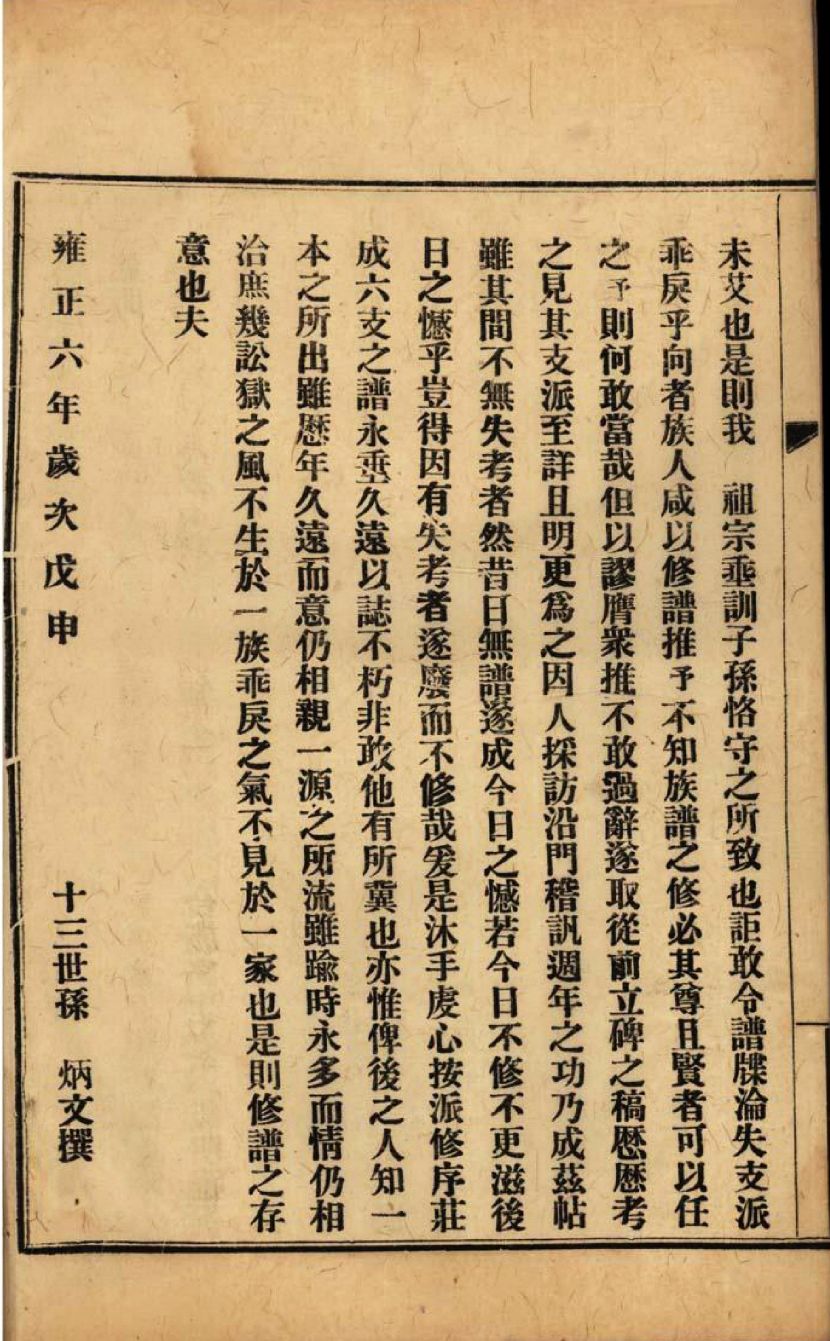 未艾也是則我　祖宗垂訓子孫恪守之所致也詎敢令譜牒淪失支派
乖戾乎向者族人咸以修譜推予不知族譜之修必其尊且賢者可以任
之予則何敢當哉但以謬膺衆推不敢過辭遂取從前立碑之稿歷歷考
之見其支派至詳且明更爲之因人採訪沿門稽訊週年之功乃成茲帖
雖其間不無失考者然昔日無譜遂成今日之憾若今日不修不更滋後
日之憾乎豈得因有失考者遂廢而不修哉爰是沐手虔心按派修序莊
成六支之譜永垂久遠以誌不朽非敢他有所冀也亦惟俾後之人知一
本之所出雖歷年久遠而意仍相親一源之所流雖踰時永多而情仍相
治庶幾訟獄之風不生於一族乖戾之氣不見於一家也是則修譜之存
意也夫
雍正六年歲次戊申　十三世孫　炳文撰